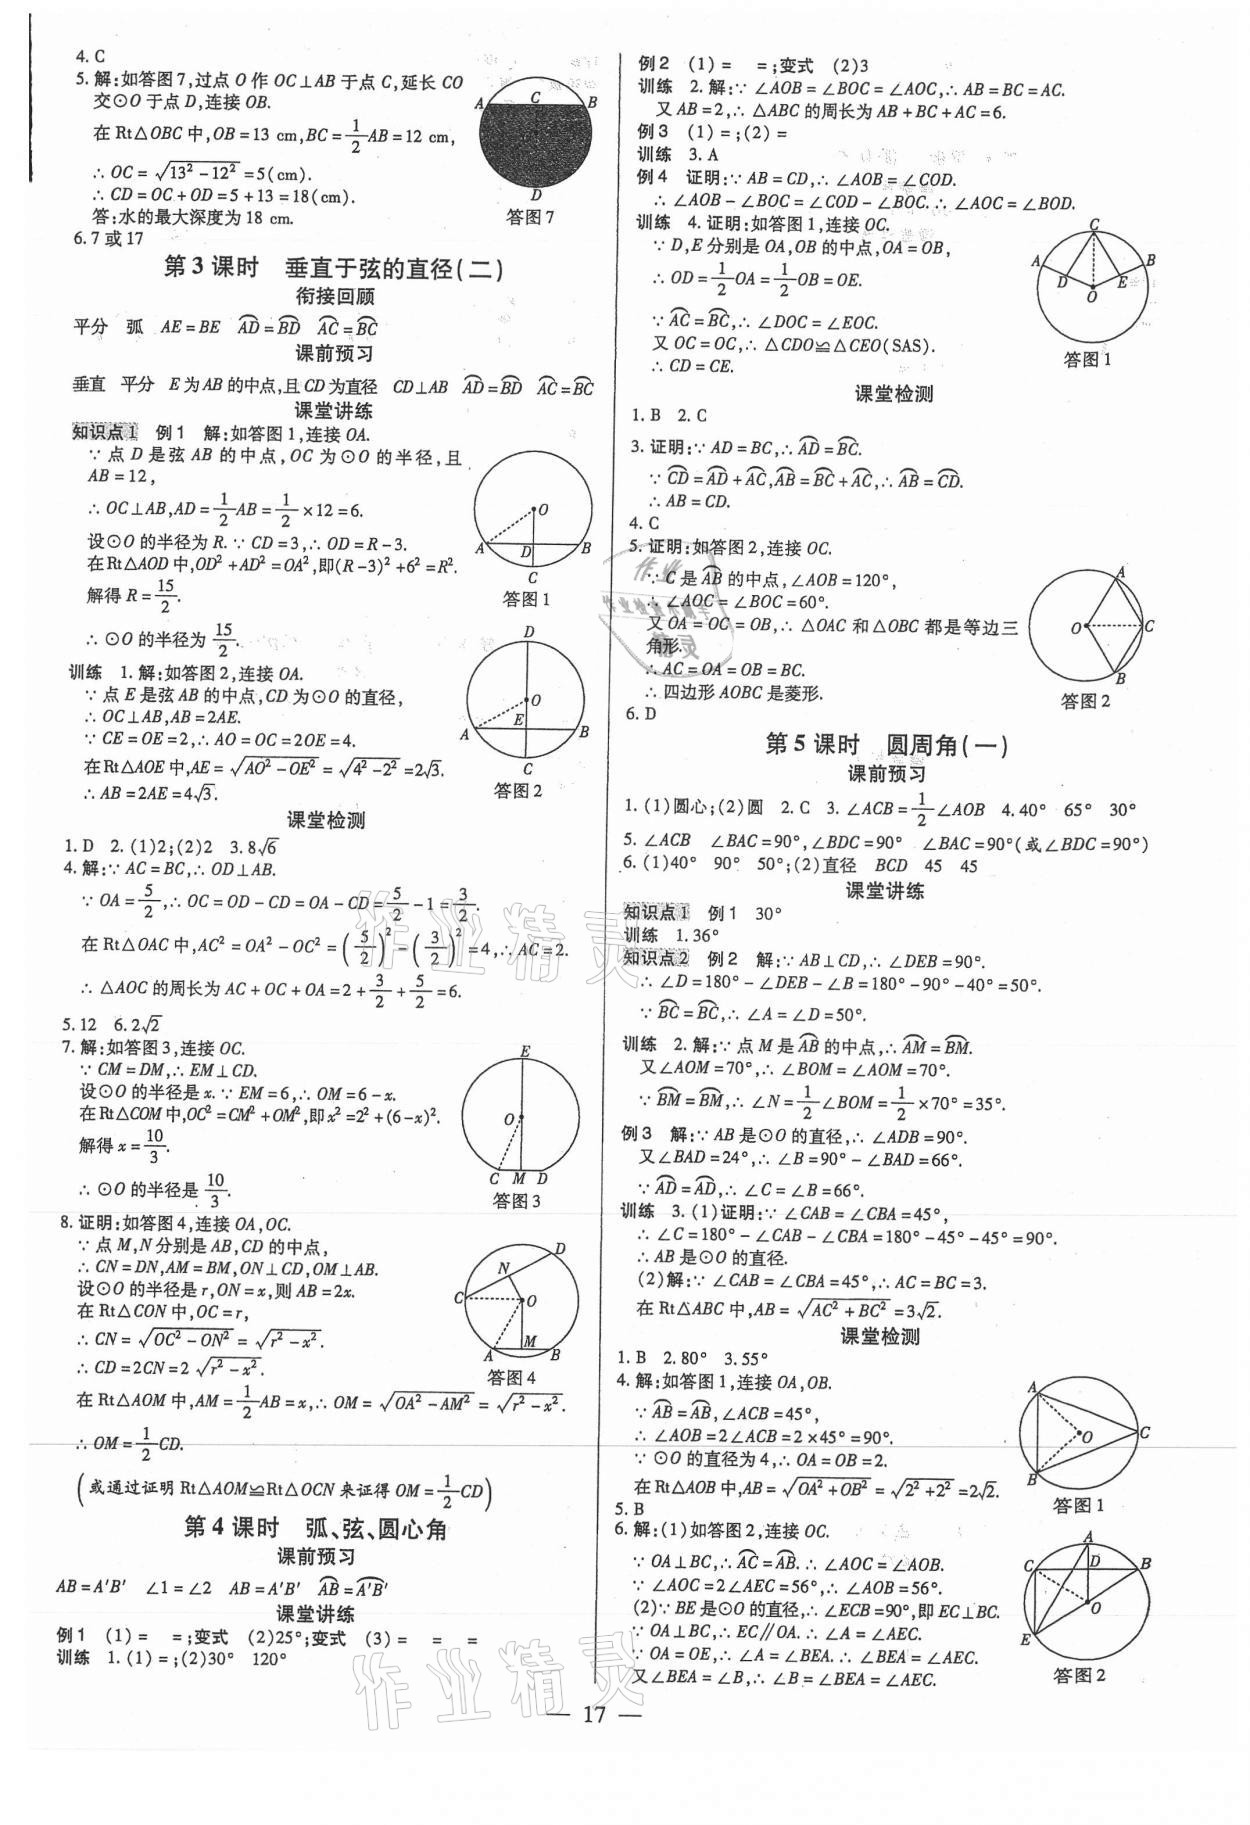 4. C
5. 解:如答图7,过点 O 作 OC⊥AB 于点 C,延长 CO
交⊙O 于点 D,连接 OB.
在 Rt△OBC 中,OB=13 cm,BC=1/2AB=12 cm,
∴ OC=√(13²-12²)=5(cm).
∴ CD=OC+OD=5+13=18(cm).
答:水的最大深度为 18 cm.
A C B
D
答图7
6. 7 或 17
第 3 课时 垂直于弦的直径(二)
衔接回顾
平分 弧 AE=BE ⌒AD=⌒BD ⌒AC=⌒BC
课前预习
垂直 平分 E 为 AB 的中点,且 CD 为直径 CD⊥AB ⌒AD=⌒BD ⌒AC=⌒BC
课堂讲练
知识点1 例1 解:如答图1,连接 OA.
∵ 点 D 是弦 AB 的中点,OC 为⊙O 的半径,且
AB=12,
∴ OC⊥AB,AD=1/2AB=1/2×12=6.
设⊙O 的半径为 R.∵ CD=3,∴ OD=R-3.
在 Rt△AOD 中,OD²+AD²=OA²,即(R-3)²+6²=R².
解得 R=15/2.
∴ ⊙O 的半径为 15/2.
O
A D B
C
答图1
训练 1. 解:如答图2,连接 OA.
∵ 点 E 是弦 AB 的中点,CD 为⊙O 的直径,
∴ OC⊥AB,AB=2AE.
∵ CE=OE=2,∴ AO=OC=2OE=4.
在 Rt△AOE 中,AE=√(AO²-OE²)=√(4²-2²)=2√3.
∴ AB=2AE=4√3.
D
O
A E B
C
答图2
课堂检测
1. D 2. (1)2;(2)2 3. 8√6
4. 解:∵ AC=BC,∴ OD⊥AB.
∵ OA=5/2,∴ OC=OD-CD=OA-CD=5/2-1=3/2.
在 Rt△OAC 中,AC²=OA²-OC²=(5/2)²-(3/2)²=4,∴ AC=2.
∴ △AOC 的周长为 AC+OC+OA=2+3/2+5/2=6.
5. 12 6. 2√2
7. 解:如答图3,连接 OC.
∵ CM=DM,∴ EM⊥CD.
设⊙O 的半径是 x.∵ EM=6,∴ OM=6-x.
在 Rt△COM 中,OC²=CM²+OM²,即 x²=2²+(6-x)².
解得 x=10/3.
∴ ⊙O 的半径是 10/3.
E
O
C M D
答图3
8. 证明:如答图4,连接 OA,OC.
∵ 点 M,N 分别是 AB,CD 的中点,
∴ CN=DN,AM=BM,ON⊥CD,OM⊥AB.
设⊙O 的半径是 r,ON=x,则 AB=2x.
在 Rt△CON 中,OC=r,
∴ CN=√(OC²-ON²)=√(r²-x²).
∴ CD=2CN=2√(r²-x²).
在 Rt△AOM 中,AM=1/2AB=x,∴ OM=√(OA²-AM²)=√(r²-x²).
∴ OM=1/2CD.
(或通过证明 Rt△AOM≌Rt△OCN 来证得 OM=1/2CD)
D
N
C O
A M B
答图4
第 4 课时 弧、弦、圆心角
课前预习
AB=A'B' ∠1=∠2 AB=A'B' ⌒AB=⌒A'B'
课堂讲练
例1 (1)= =;变式 (2)25°;变式 (3)= = =
训练 1. (1)=;(2)30° 120°
例2 (1)= =;变式 (2)3
训练 2. 解:∵ ∠AOB=∠BOC=∠AOC,∴ AB=BC=AC.
又 AB=2,∴ △ABC 的周长为 AB+BC+AC=6.
例3 (1)=;(2)=
训练 3. A
例4 证明:∵ AB=CD,∴ ∠AOB=∠COD.
∴ ∠AOB-∠BOC=∠COD-∠BOC.∴ ∠AOC=∠BOD.
训练 4. 证明:如答图1,连接 OC.
∵ D,E 分别是 OA,OB 的中点,OA=OB,
∴ OD=1/2OA=1/2OB=OE.
∵ ⌒AC=⌒BC,∴ ∠DOC=∠EOC.
又 OC=OC,∴ △CDO≌△CEO(SAS).
∴ CD=CE.
C
A B
D E
O
答图1
课堂检测
1. B 2. C
3. 证明:∵ AD=BC,∴ ⌒AD=⌒BC.
∵ ⌒CD=⌒AD+⌒AC,⌒AB=⌒BC+⌒AC,∴ ⌒AB=⌒CD.
∴ AB=CD.
4. C
5. 证明:如答图2,连接 OC.
∵ C 是⌒AB的中点,∠AOB=120°,
∴ ∠AOC=∠BOC=60°.
又 OA=OC=OB,∴ △OAC 和△OBC 都是等边三
角形.
∴ AC=OA=OB=BC.
∴ 四边形 AOBC 是菱形.
A
O C
B
答图2
6. D
第 5 课时 圆周角(一)
课前预习
1. (1)圆心;(2)圆 2. C 3. ∠ACB=1/2∠AOB 4. 40° 65° 30°
5. ∠ACB ∠BAC=90°,∠BDC=90° ∠BAC=90°(或∠BDC=90°)
6. (1)40° 90° 50°;(2)直径 BCD 45 45
课堂讲练
知识点1 例1 30°
训练 1. 36°
知识点2 例2 解:∵ AB⊥CD,∴ ∠DEB=90°.
∴ ∠D=180°-∠DEB-∠B=180°-90°-40°=50°.
∵ ⌒BC=⌒BC,∴ ∠A=∠D=50°.
训练 2. 解:∵ 点 M 是⌒AB的中点,∴ ⌒AM=⌒BM.
又∠AOM=70°,∴ ∠BOM=∠AOM=70°.
∵ ⌒BM=⌒BM,∴ ∠N=1/2∠BOM=1/2×70°=35°.
例3 解:∵ AB 是⊙O 的直径,∴ ∠ADB=90°.
又∠BAD=24°,∴ ∠B=90°-∠BAD=66°.
∵ ⌒AD=⌒AD,∴ ∠C=∠B=66°.
训练 3. (1)证明:∵ ∠CAB=∠CBA=45°,
∴ ∠C=180°-∠CAB-∠CBA=180°-45°-45°=90°.
∴ AB 是⊙O 的直径.
(2)解:∵ ∠CAB=∠CBA=45°,∴ AC=BC=3.
在 Rt△ABC 中,AB=√(AC²+BC²)=3√2.
课堂检测
1. B 2. 80° 3. 55°
4. 解:如答图1,连接 OA,OB.
∵ ⌒AB=⌒AB,∠ACB=45°,
∴ ∠AOB=2∠ACB=2×45°=90°.
∵ ⊙O 的直径为 4,∴ OA=OB=2.
在 Rt△AOB 中,AB=√(OA²+OB²)=√(2²+2²)=2√2.
A
O C
B
答图1
5. B
6. 解:(1)如答图2,连接 OC.
∵ OA⊥BC,∴ ⌒AC=⌒AB.∴ ∠AOC=∠AOB.
∵ ∠AOC=2∠AEC=56°,∴ ∠AOB=56°.
(2)∵ BE 是⊙O 的直径,∴ ∠ECB=90°,即 EC⊥BC.
∵ OA⊥BC,∴ EC∥OA.∴ ∠A=∠AEC.
∵ OA=OE,∴ ∠A=∠BEA.∴ ∠BEA=∠AEC.
又∠BEA=∠B,∴ ∠B=∠BEA=∠AEC.
A
C D B
O
E
答图2
— 17 —
作业精灵
作业精灵